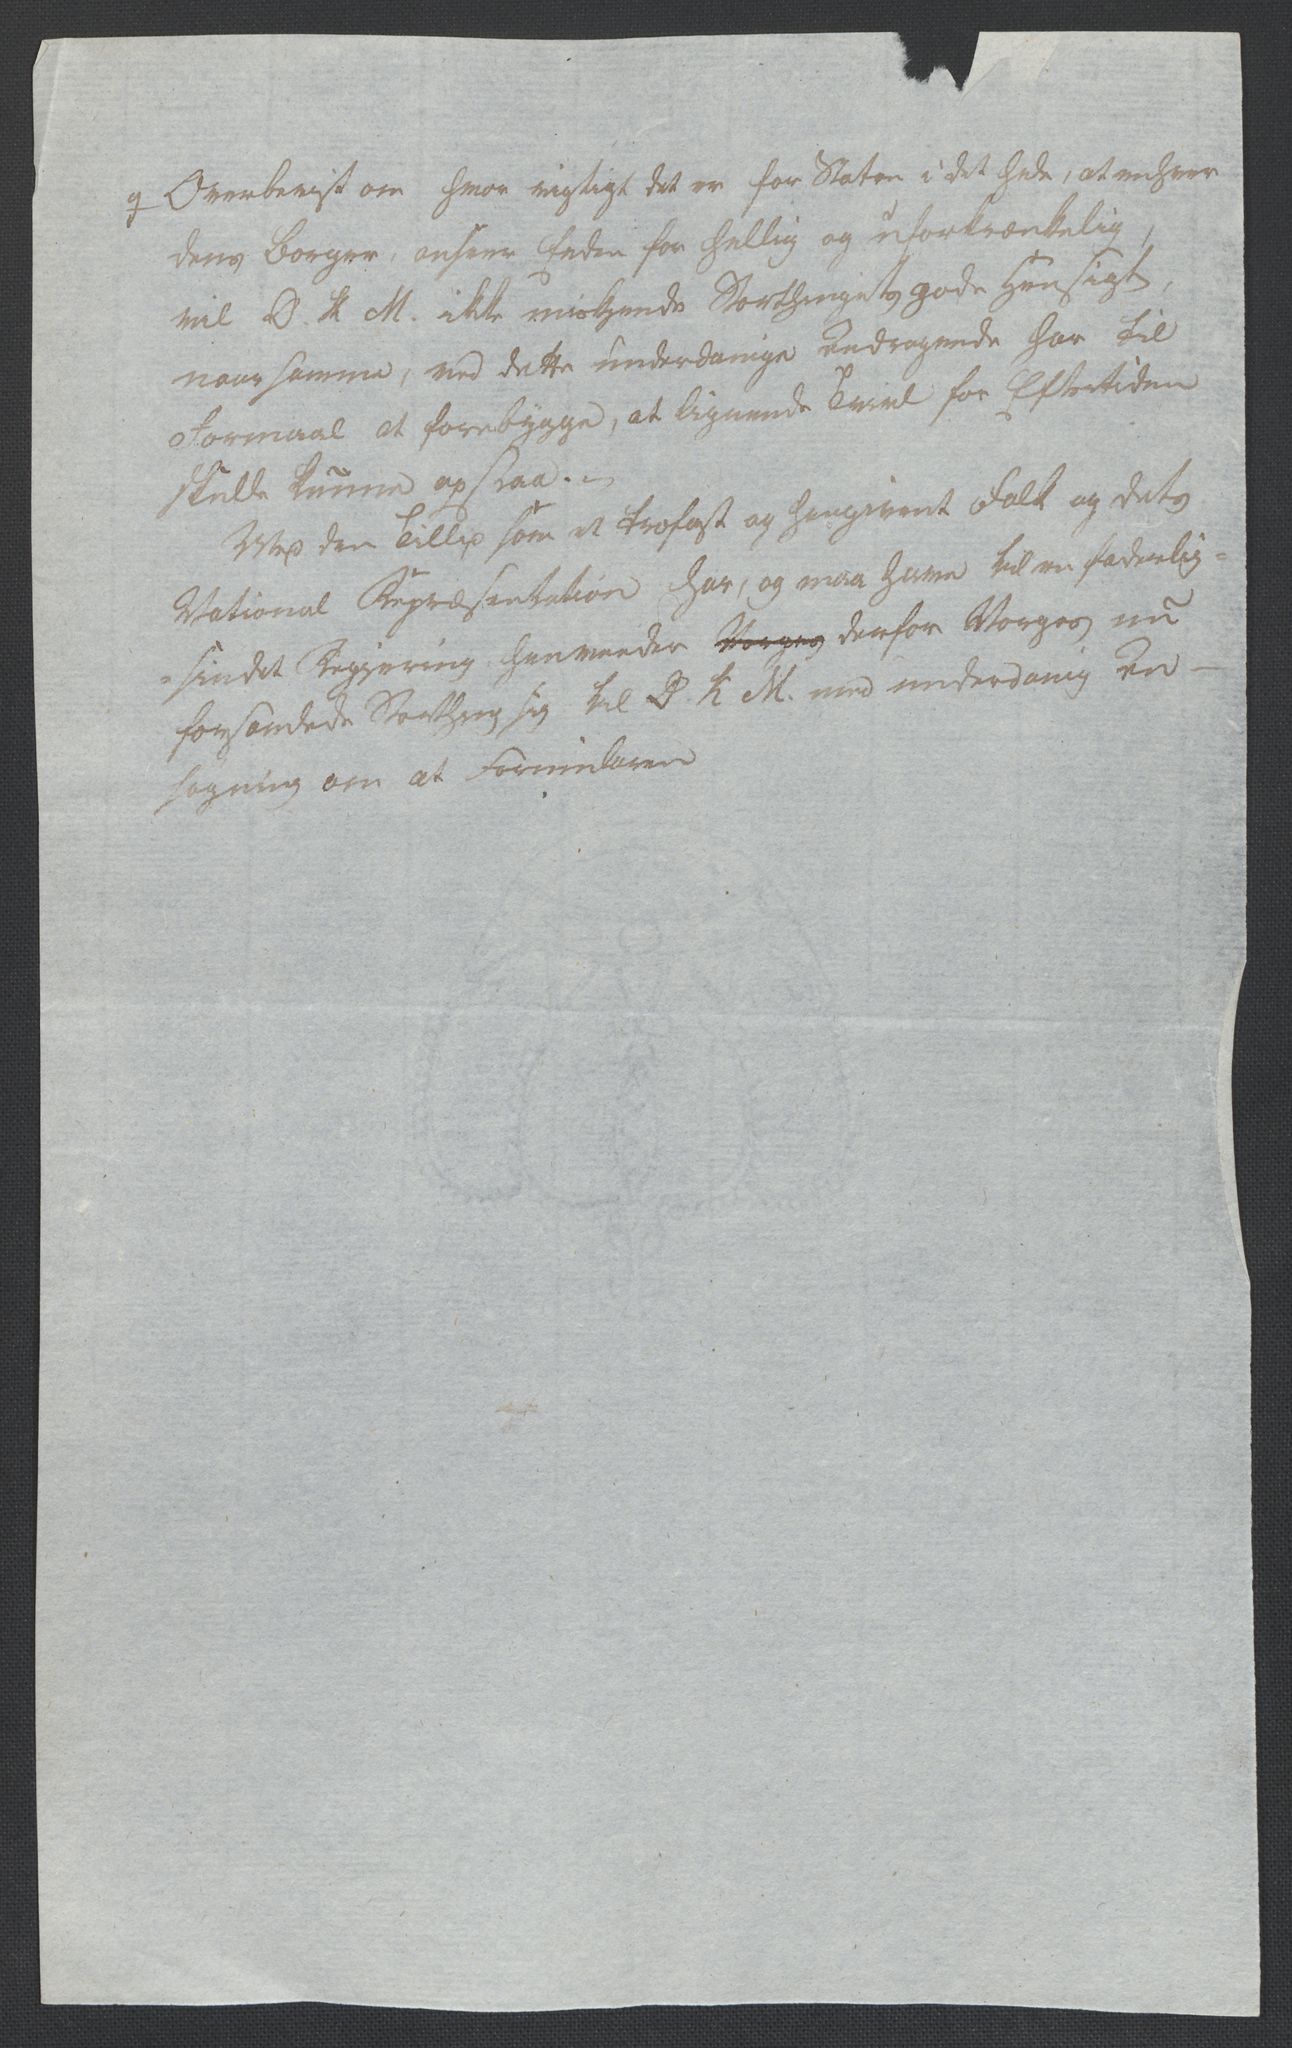 Overbeviist om hvor vigtigt det er for Staten i det hele, at enhver
dens Borger, anseer Eeden for hellig og uforkrænkelig,
vil D. K. M. ikke miskjende Storthingets gode Hensigt,
naar samme, ved dette underdanige Andragende har til
Formaal at forebygge, at lignende Tvivl for Eftertiden
skulle kunne opstaae.
Med den Tillid som et trofast og hengivent Folk og dets
National Repræsentation har, og maa have til en faderlig-
sindet Regjering henvender Norges derfor Norges nu
forsamlede Storthing sig til D. K. M. med underdanig An-
søgning om at Formularen